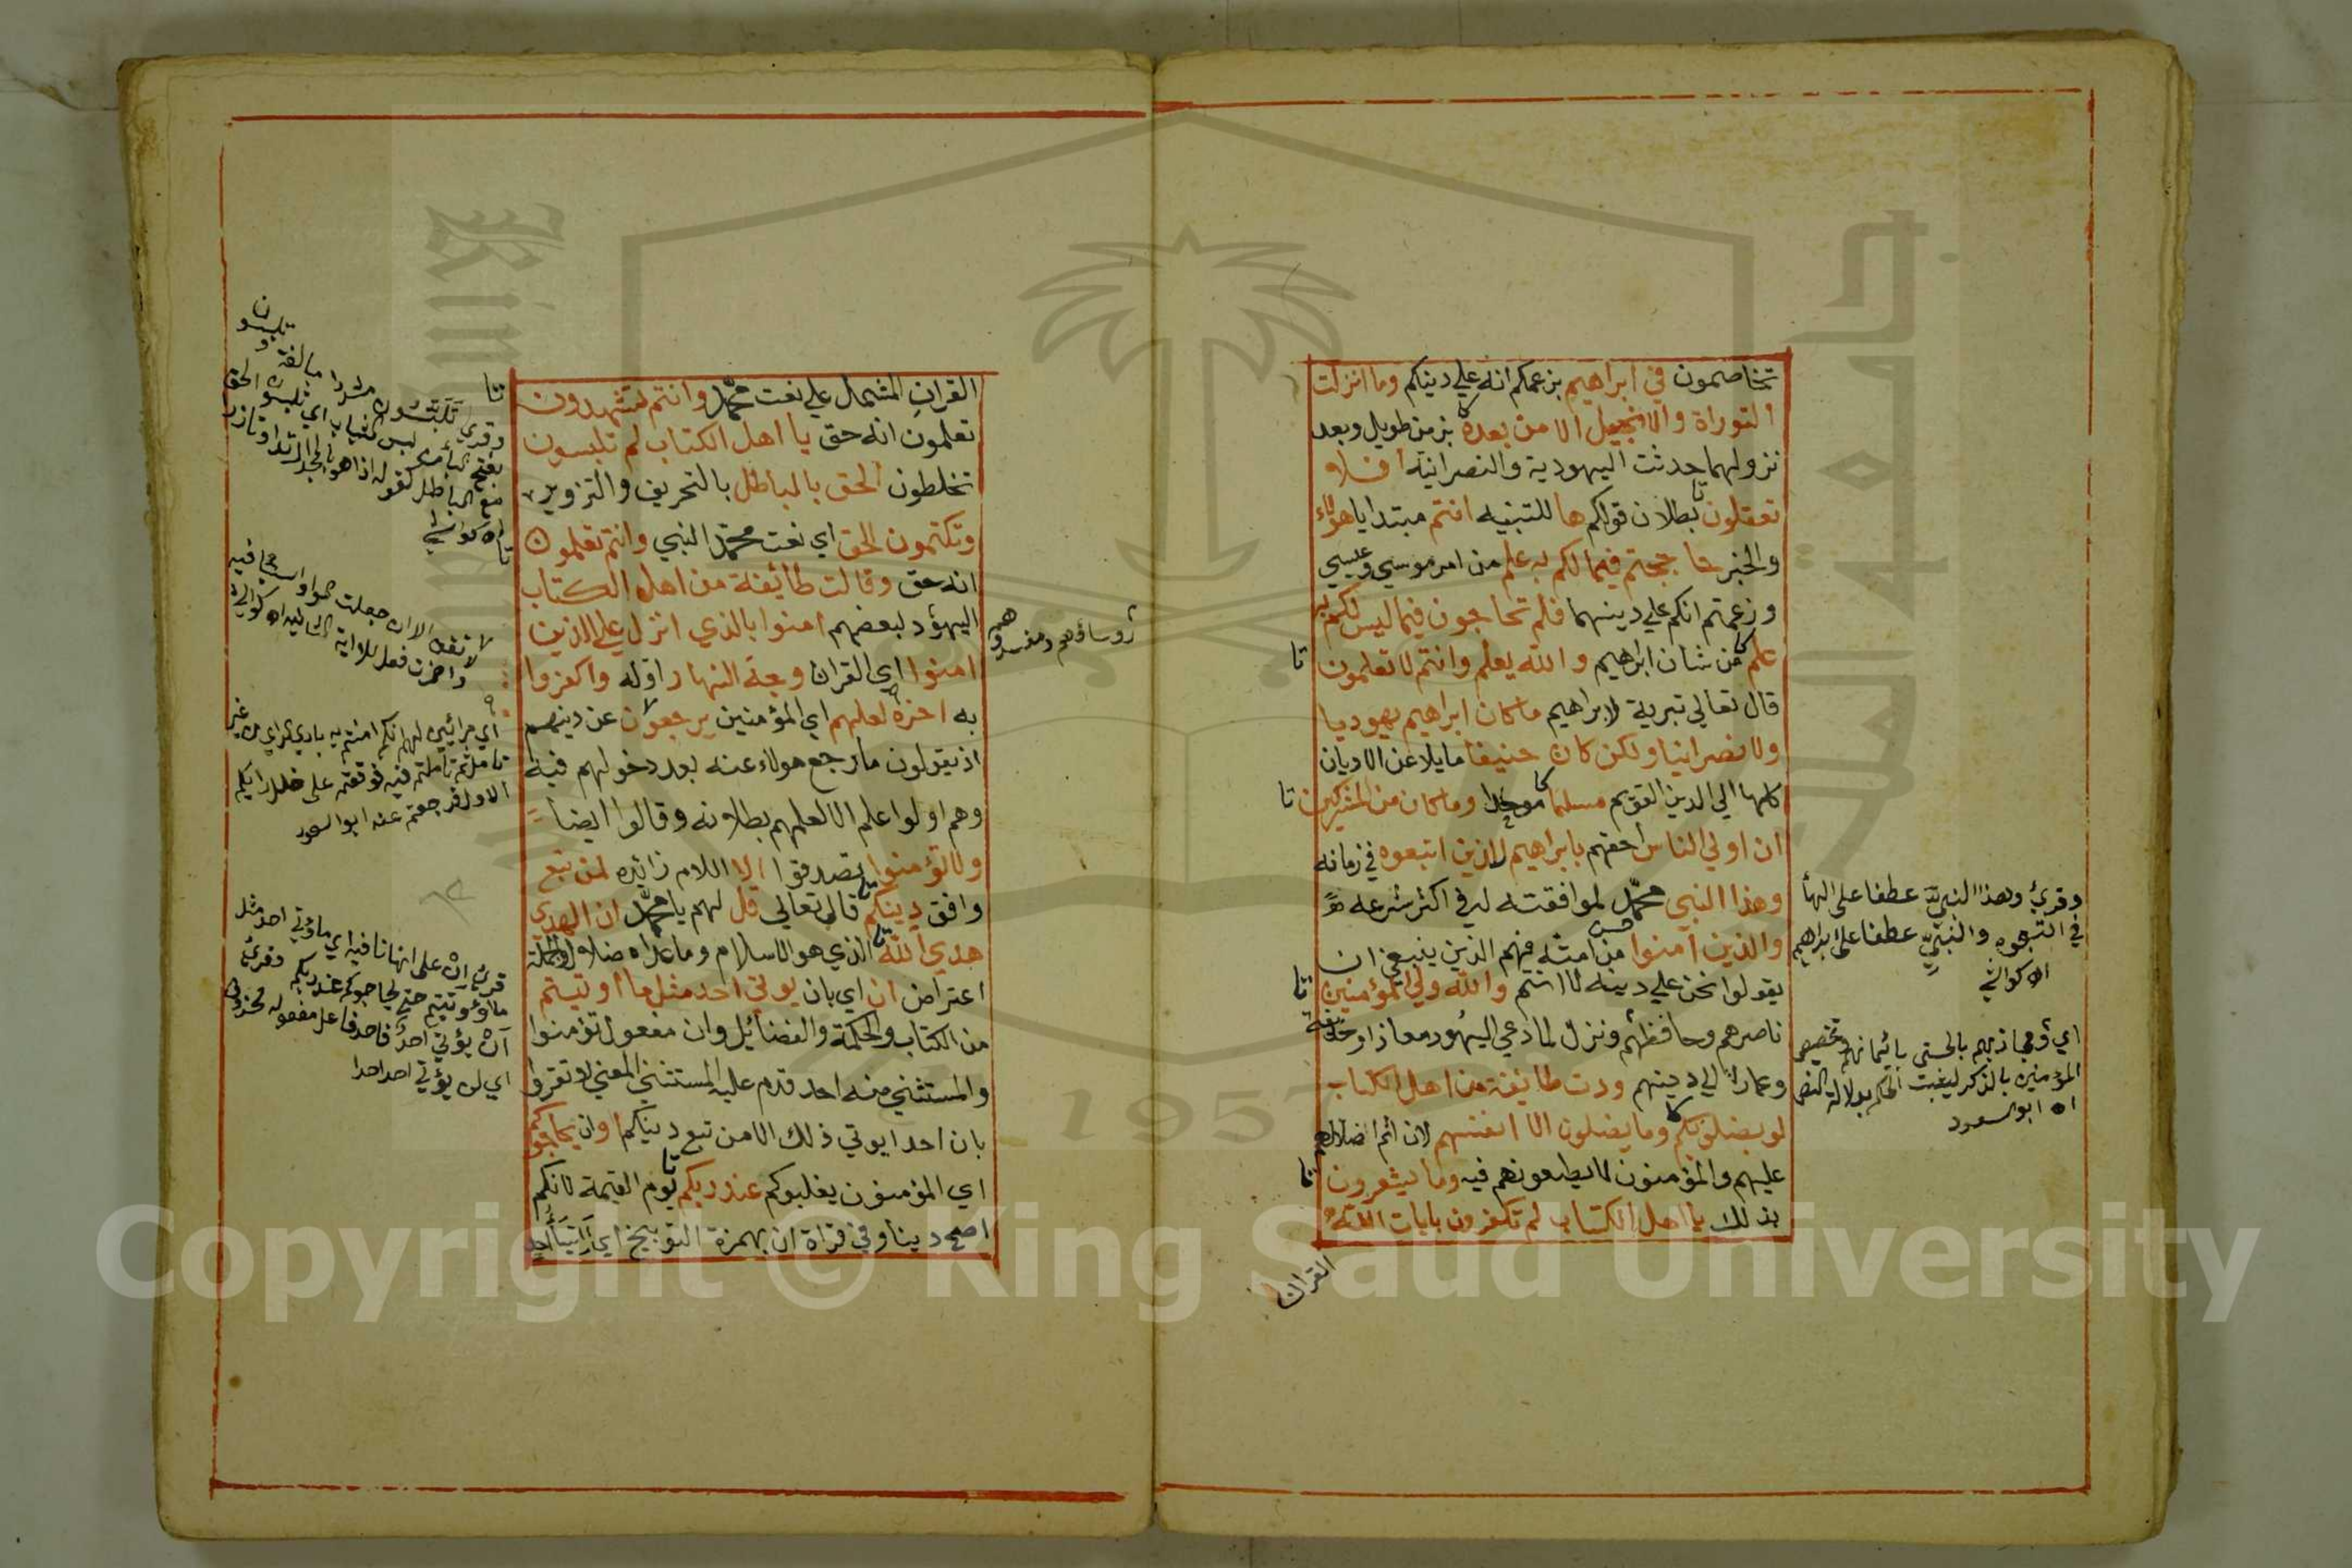 تخاصمون في ابراهيم بزعمكم انه علي دينكم وما انزلت
التوراة والانجيل الا من بعده بزمن طويل وبعد
نزولهما حدثت اليهودية والنصرانية افلا
تعقلون بطلان قولكم ها للتنبيه انتم مبتدا يا هؤلاء
والخبر حاججتم فيما لكم به علم من امر موسي وعيسي
وزعمتم انكم علي دينهما فلم تحاجون فيما ليس لكم به
علم من شان ابراهيم والله يعلم وانتم لا تعلمون
قال تعالي تبرية لابراهيم ما كان ابراهيم يهوديا
ولا نصرانيا ولكن كان حنيفا مايلا عن الاديان
كلها الي الدين القويم مسلما موحدا وما كان من المشركين
ان اولي الناس احقهم بابراهيم للذين اتبعوه في زمانه
وهذا النبي محمد لموافقته له في اكثر شرعه
والذين امنوا من امته فهم الذين ينبغي ان
يقولوا نحن علي دينه لا انتم والله ولي المؤمنين
ناصرهم وحافظهم ونزل لما دعي اليهود معاذا وحذيفة
وعمارا الي دينهم ودت طايفة من اهل الكتاب
لو يضلونكم وما يضلون الا انفسهم لان اثم اضلالهم
عليهم والمؤمنون لا يطيعونهم فيه وما يشعرون
بذلك يا اهل الكتاب لم تكفرون بايات الله
القران
وقرئ وهذا النبيَّ عطفا على الهأ
في اتبعوه والنبيِّ عطفا على ابراهيم
اه كواشي
اي ويجازيهم بالحسنى بايمانهم وتخصيص
المؤمنين بالذكر ليثبت الحكم بدلالة النص
اه ابو السعود
القران المشتمل علي نعت محمد وانتم تشهدون
تعلمون انه حق يا اهل الكتاب لم تلبسون
تخلطون الحق بالباطل بالتحريف والتزوير
وتكتمون الحق اي نعت محمد النبي وانتم تعلمون
انه حق وقالت طائفة من اهل الكتاب
اليهود لبعضهم امنوا بالذي انزل علي الذين
امنوا اي القران وجه النهار اوله واكفروا
به اخره لعلهم اي المؤمنين يرجعون عن دينهم
اذ يقولون ما رجع هولاء عنه بعد دخولهم فيه
وهم اولوا علم الا لعلمهم بطلانه وقالوا ايضا
ولا تؤمنوا تصدقوا الا اللام زائده لمن تبع
وافق دينكم قال تعالي قل لهم يا محمد ان الهدي
هدي الله الذي هو الاسلام وما عداه ضلال والجملة
اعتراض ان اي بان يوتي احد مثل ما اوتيتم
من الكتاب والحكمة والفضائل وان مفعول تؤمنوا
والمستثني منه احد قدم عليه المستثني المعني لا تقروا
بان احدا يوتي ذلك الا من تبع دينكم او ان يحاجوكم
اي المؤمنون يغلبوكم عند ربكم يوم القيمة لانكم
اصح دينا وفي قراة ان بهمزة التوبيخ اي
رؤساؤهم ومفسدوهم
وقرئ تلبسون مشددا مبالغة
بفتح الباء من لبس الثياب اي تلبسون الحق
مع الباطل كقوله اذا هو بالمجد ارتدا وتازرا
اه كواشي
لا تقف الان جعلت الواو
اي مرائين لهم انكم امنتم به بادي الراي من غير
تامل ثم تاملتم فيه فوقفتم على خلل رايكم
الاول فرجعتم عنه ابو السعود
قرئ إن على انها نافية اي ما يؤتي احد مثل
ما اوتيتم حتى يحاجوكم عند ربكم وقرئ
ان يؤتي احد فاعل مفعوله محذوف
اي لن يؤتي احد احدا
Copyright © King Saud University
1957